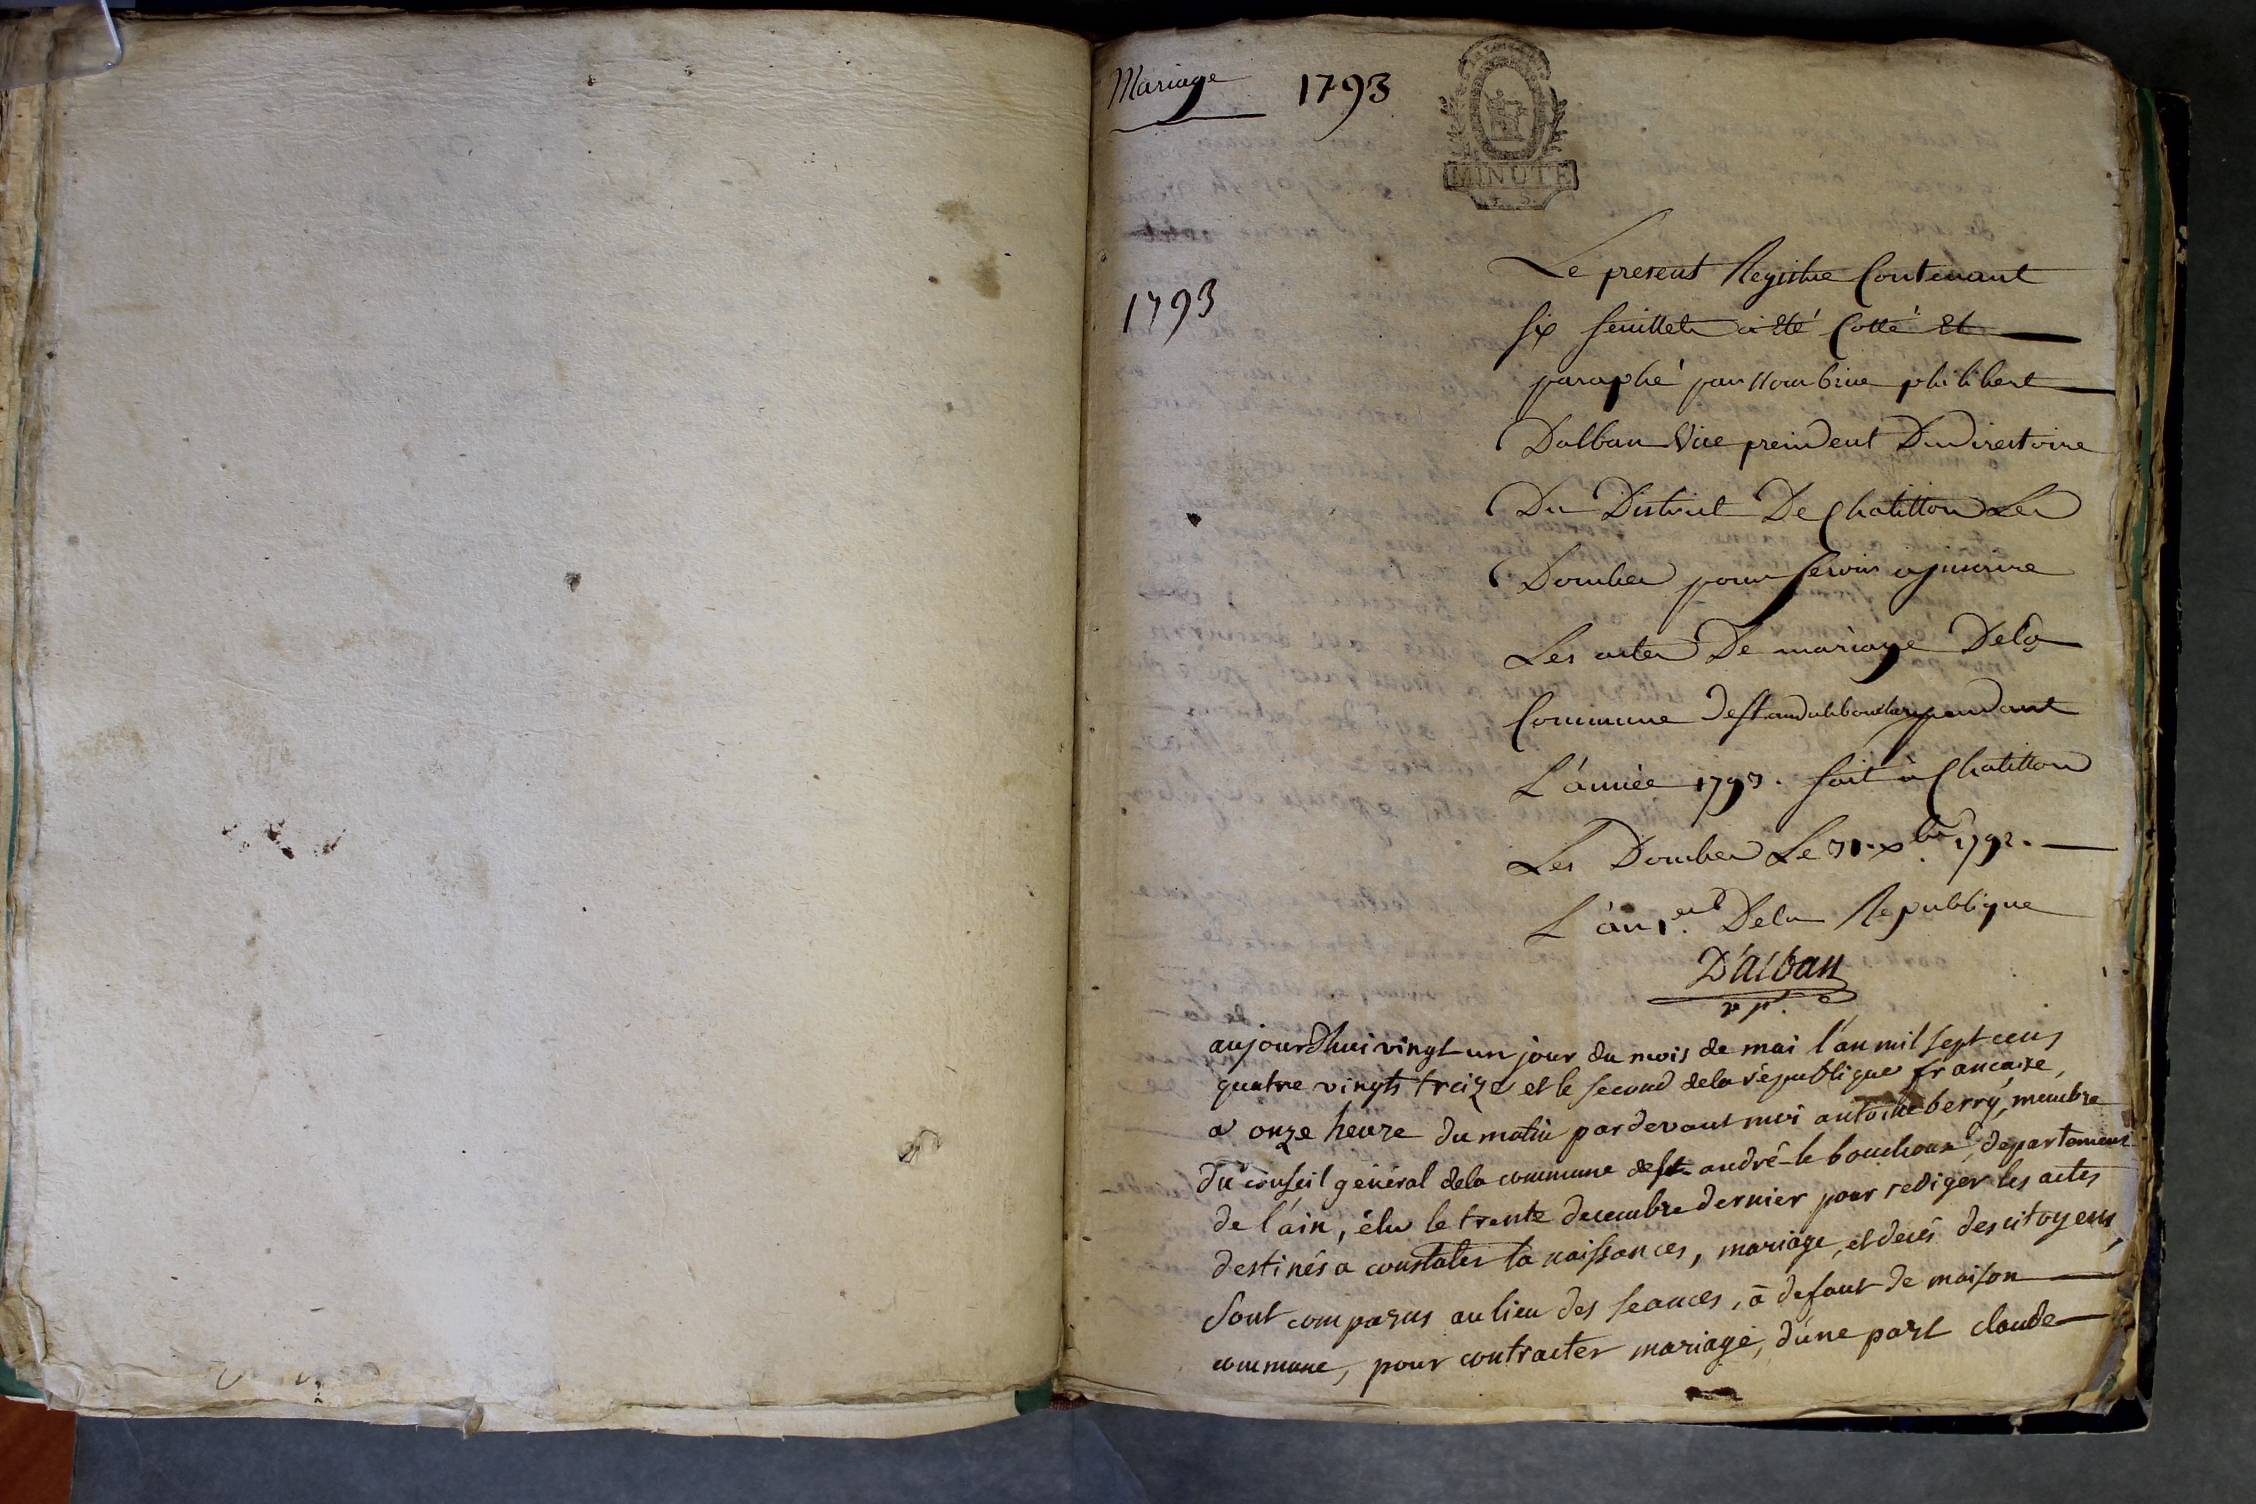 Mariage 1793
MINUTE
1793
Le present Registre Contenant
six feuillets a été Cotté Et
paraphé par nous brice philibert
Dalban Vice president Du directoire
Du District De Chatillon Les
Dombes pour servir a inscrire
Les actes De mariage Dela
Commune de st andré le bouchoux pendant
L'année 1793. fait à Chatillon
Les Dombes Le 31. xbre 1792.
L'an 1er. Dela Republique
D'alban
v. pt.
aujourdhui vingt un jour du mois de mai l'an mil sept cens
quatre vingts treize et le second dela république francaise,
a onze heure du matin pardevant moi antoine berry, membre
du conseil général dela commune de st andré-le bouchoux, departement
de l'ain, élu le trente decembre dernier pour rediger les actes
destinés a constater la naissances, mariage, et decés des citoyens,
Sont comparus au lieu des seances, à defaut de maison
commune, pour contracter mariage, d'une part claude